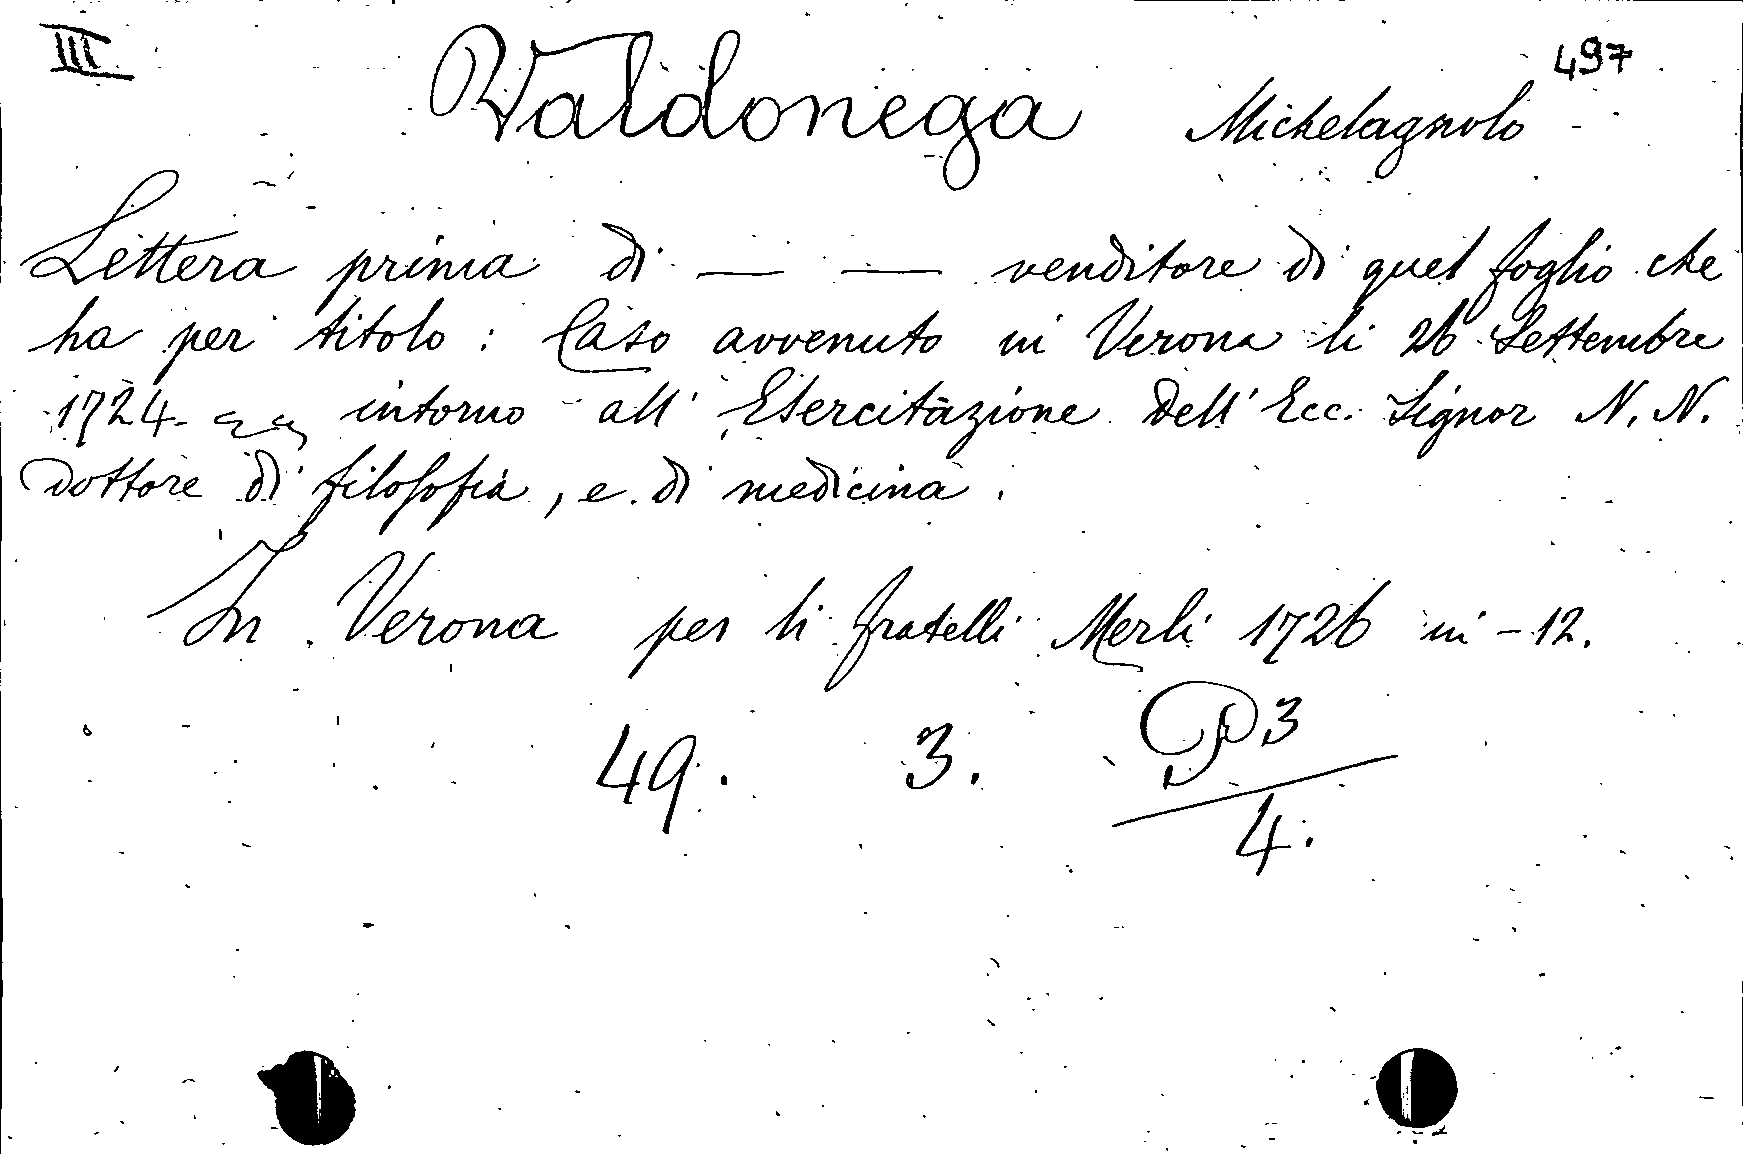 III
497
Valdonega Michelagnolo
Lettera prima di — — venditore di quel foglio che
ha per titolo : Caso avvenuto in Verona li 26 Settembre
1724. intorno all' Esercitazione dell' Ecc. Signor N. N.
dottore di filosofia, e di medicina.
In Verona per li fratelli Merli 1726 in-12.
49. 3. P3
4.